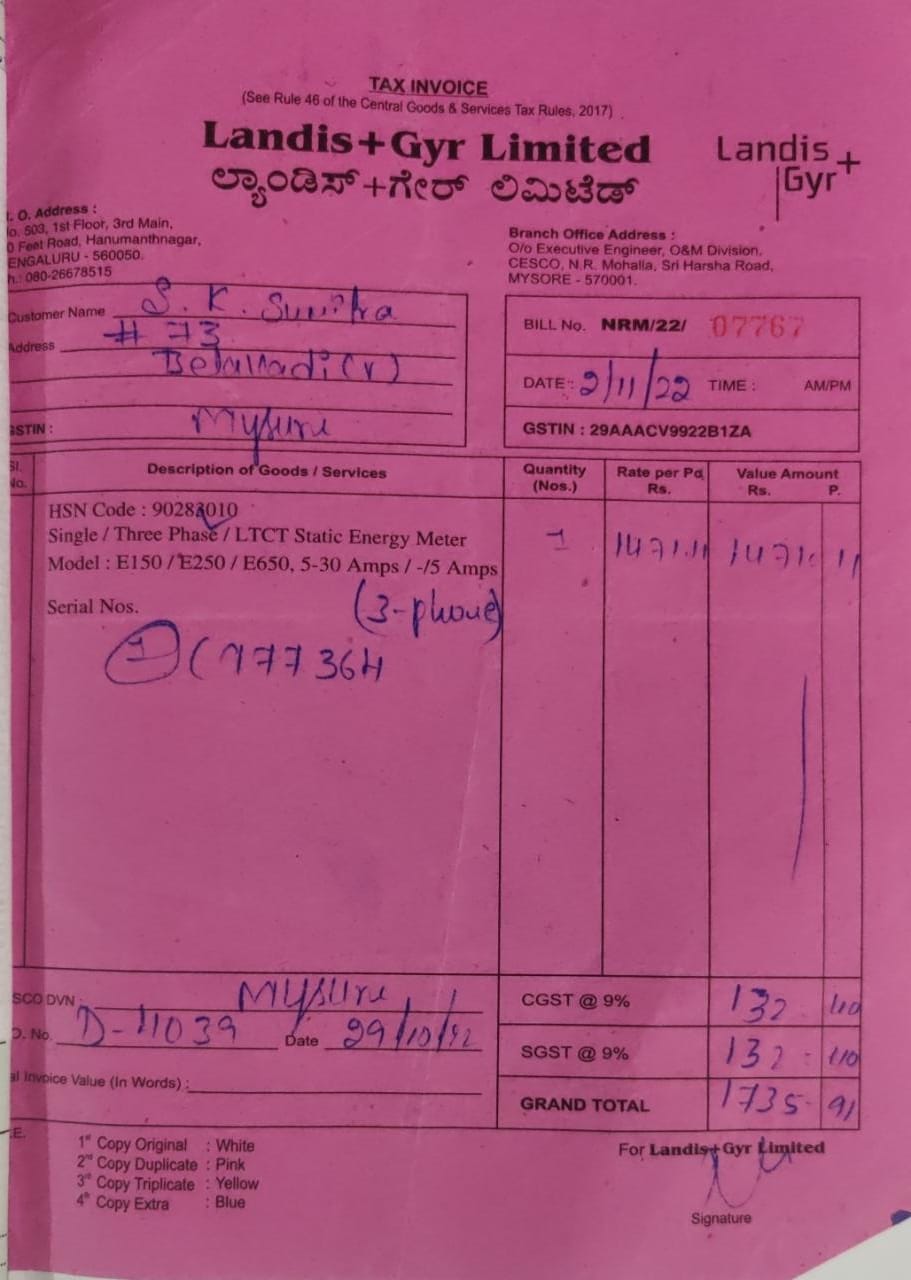 TAX INVOICE
(See Rule 46 of the Central Goods & Services Tax Rules, 2017)
Landis+Gyr Limited
ಲ್ಯಾಂಡಿಸ್+ಗೇರ್ ಲಿಮಿಟೆಡ್
Landis
Gyr+
. O. Address :
o. 503, 1st Floor, 3rd Main,
0 Feet Road, Hanumanthnagar,
ENGALURU - 560050.
h.: 080-26678515
Branch Office Address :
O/o Executive Engineer, O&M Division,
CESCO, N.R. Mohalla, Sri Harsha Road,
MYSORE - 570001.
Customer Name S. K. Sunitra
Address # 73
(V)
Mysure
GSTIN :
BILL No. NRM/22/ 07767
DATE : 2/11/22 TIME : AM/PM
GSTIN : 29AAACV9922B1ZA
Sl. No. Description of Goods / Services Quantity (Nos.) Rate per Pd Rs. Value Amount Rs. P.
HSN Code : 90283010
Single / Three Phase / LTCT Static Energy Meter 1 1471.11 1471. 11
Model : E150 / E250 / E650, 5-30 Amps / -/5 Amps
Serial Nos. (3-phase)
1 777364
SCO DVN : Mysure
O. No. D-11039 Date 29/10/
al Invoice Value (In Words) :
CGST @ 9% 132 - 40
SGST @ 9% 132 - 40
GRAND TOTAL 1735 - 91
.E.
1st Copy Original : White
2nd Copy Duplicate : Pink
3rd Copy Triplicate : Yellow
4th Copy Extra : Blue
For Landis+Gyr Limited
Signature